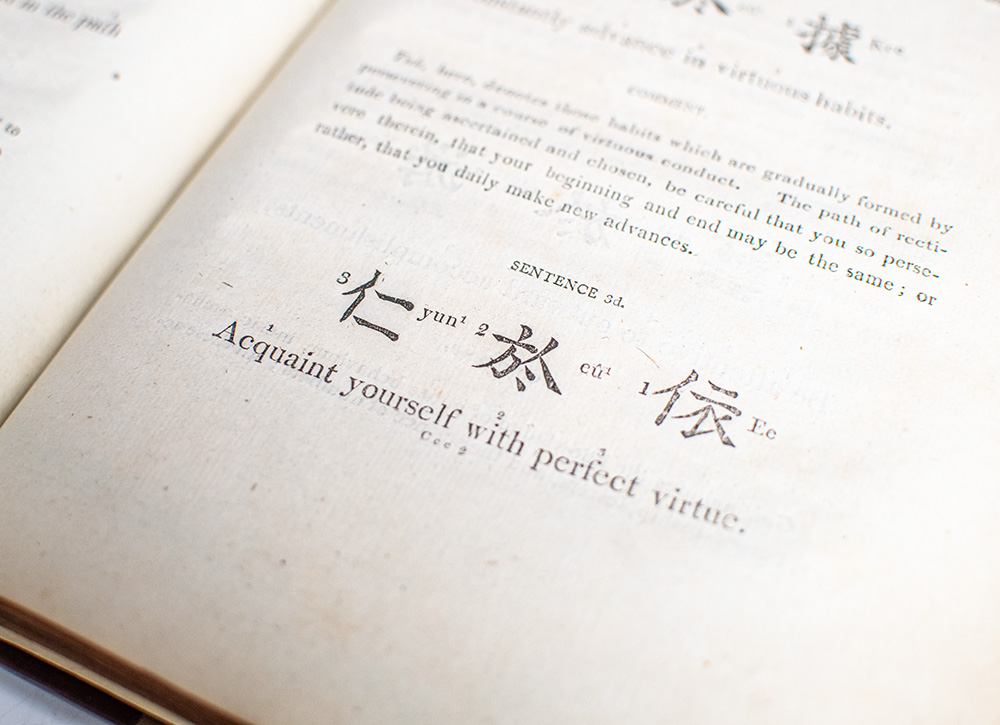 d in the path
to
於 據 Keu
constantly advance in virtuous habits.
COMMENT.
Tuk, here, denotes those habits which are gradually formed by
persevering in a course of virtuous conduct. The path of recti-
tude being ascertained and chosen, be careful that you so perse-
vere therein, that your beginning and end may be the same; or
rather, that you daily make new advances.
SENTENCE 3d.
3 仁 yun¹ 2 於 eû¹ 1 依 Ee
1 2 3
Acquaint yourself with perfect virtue.
Ccc 2